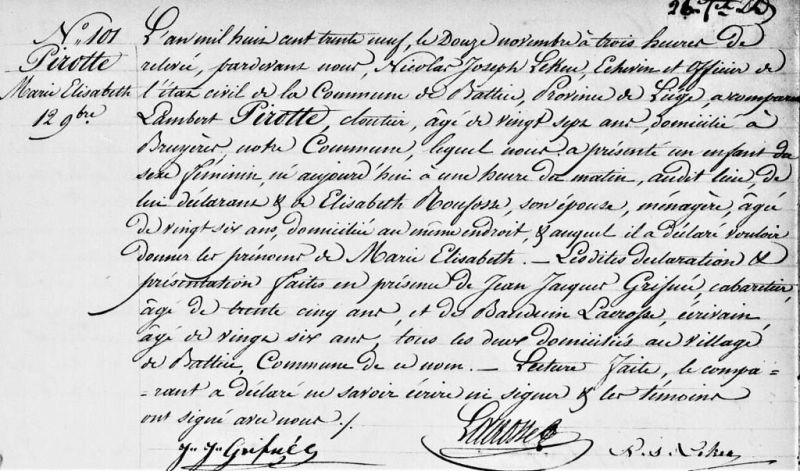 N.o 101
Pirotte
Marie Elisabeth
12 9bre
L'an mil huit cent trente neuf, le Douze novembre à trois heures de
relevée, pardevant nous, Nicolas Joseph Lekeu, Echevin et Officier de
l'état civil de la Commune de Battice, Province de Liége, a comparu
Lambert Pirotte, cloutier, âgé de vingt sept ans, domicilié à
Bruyères notre Commune, lequel nous a présenté un enfant du
sexe féminin, né aujourd'hui à une heure du matin, audit lieu, de
lui déclarant & de Elisabeth Roufosse, son épouse, ménagère, âgée
de vingt six ans, domiciliée au même endroit, & auquel il a déclaré vouloir
donner les prénoms de Marie Elisabeth. — Lesdites déclaration &
présentation faites en présence de Jean Jacques Grifnée cabaretier,
âgé de trente cinq ans, et de Bauduin Lacrosse, écrivain,
âgé de vingt six ans, tous les deux domiciliés au village
de Battice, Commune de ce nom. — Lecture faite, le compa=
=rant a déclaré ne savoir écrire ni signer & les témoins
ont signé avec nous ./.
J. J. Grifnée
Lacrosse
N. J. Lekeu